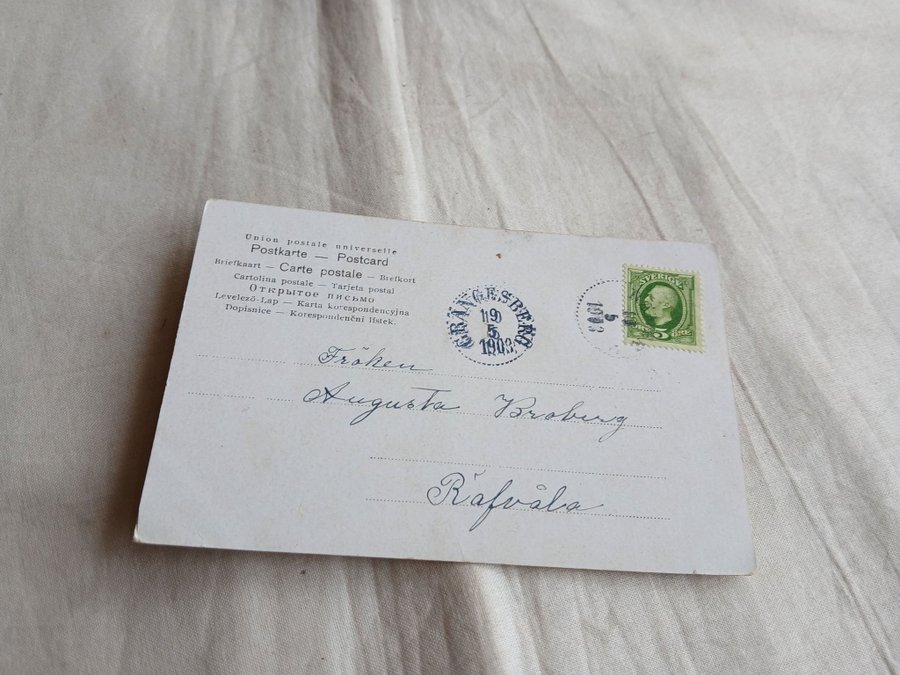 Union postale universelle
Postkarte — Postcard
Briefkaart — Carte postale — Brefkort
Cartolina postale — Tarjeta postal
Открытое письмо
Levelező-Lap — Karta korespondencyjna
Dopisnice — Korespondenční lístek.
GRÄNGESBERG
19
5
1903
1903
5
SVERIGE
5 ÖRE
Fröken
Augusta Broberg
Räfvåla